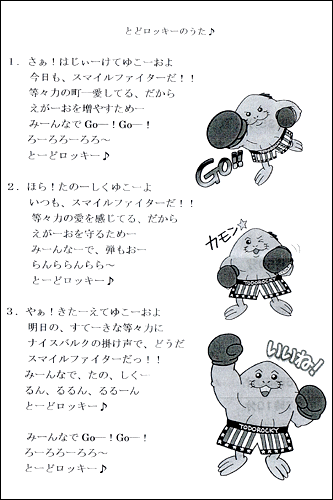 とどロッキーのうた♪
1. さぁ！はじぃーけてゆこーおよ
今日も、スマイルファイターだ！！
等々力の町一愛してる、だから
えがーおを増やすためー
みーんなで Go—！Go！
ろーろーろーろ～
とーどロッキー♪
GO!!
2. ほら！たのーしくゆこーよ
いつも、スマイルファイターだ！！
等々力の愛を感じてる、だから
えがーおを守るためー
みーんなーで、弾もおー
らんららんらら～
とーどロッキー♪
カモン☆
3. やぁ！きたーえてゆこーおよ
明日の、すてーきな等々力に
ナイスバルクの掛け声で、どうだ
スマイルファイターだっ！！
みーんなで、たの、しくー
るん、るるん、るるーん
とーどロッキー♪
いいね!
TODOROCKY
みーんなで Go—！Go！
ろーろーろーろ～
とーどロッキー♪